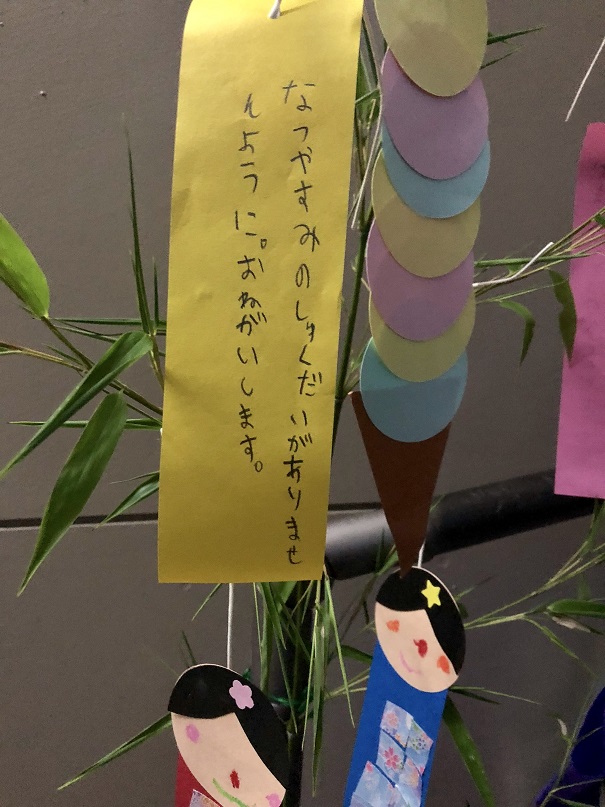 なつやすみのしゅくだいがありませ
んように。おねがいします。